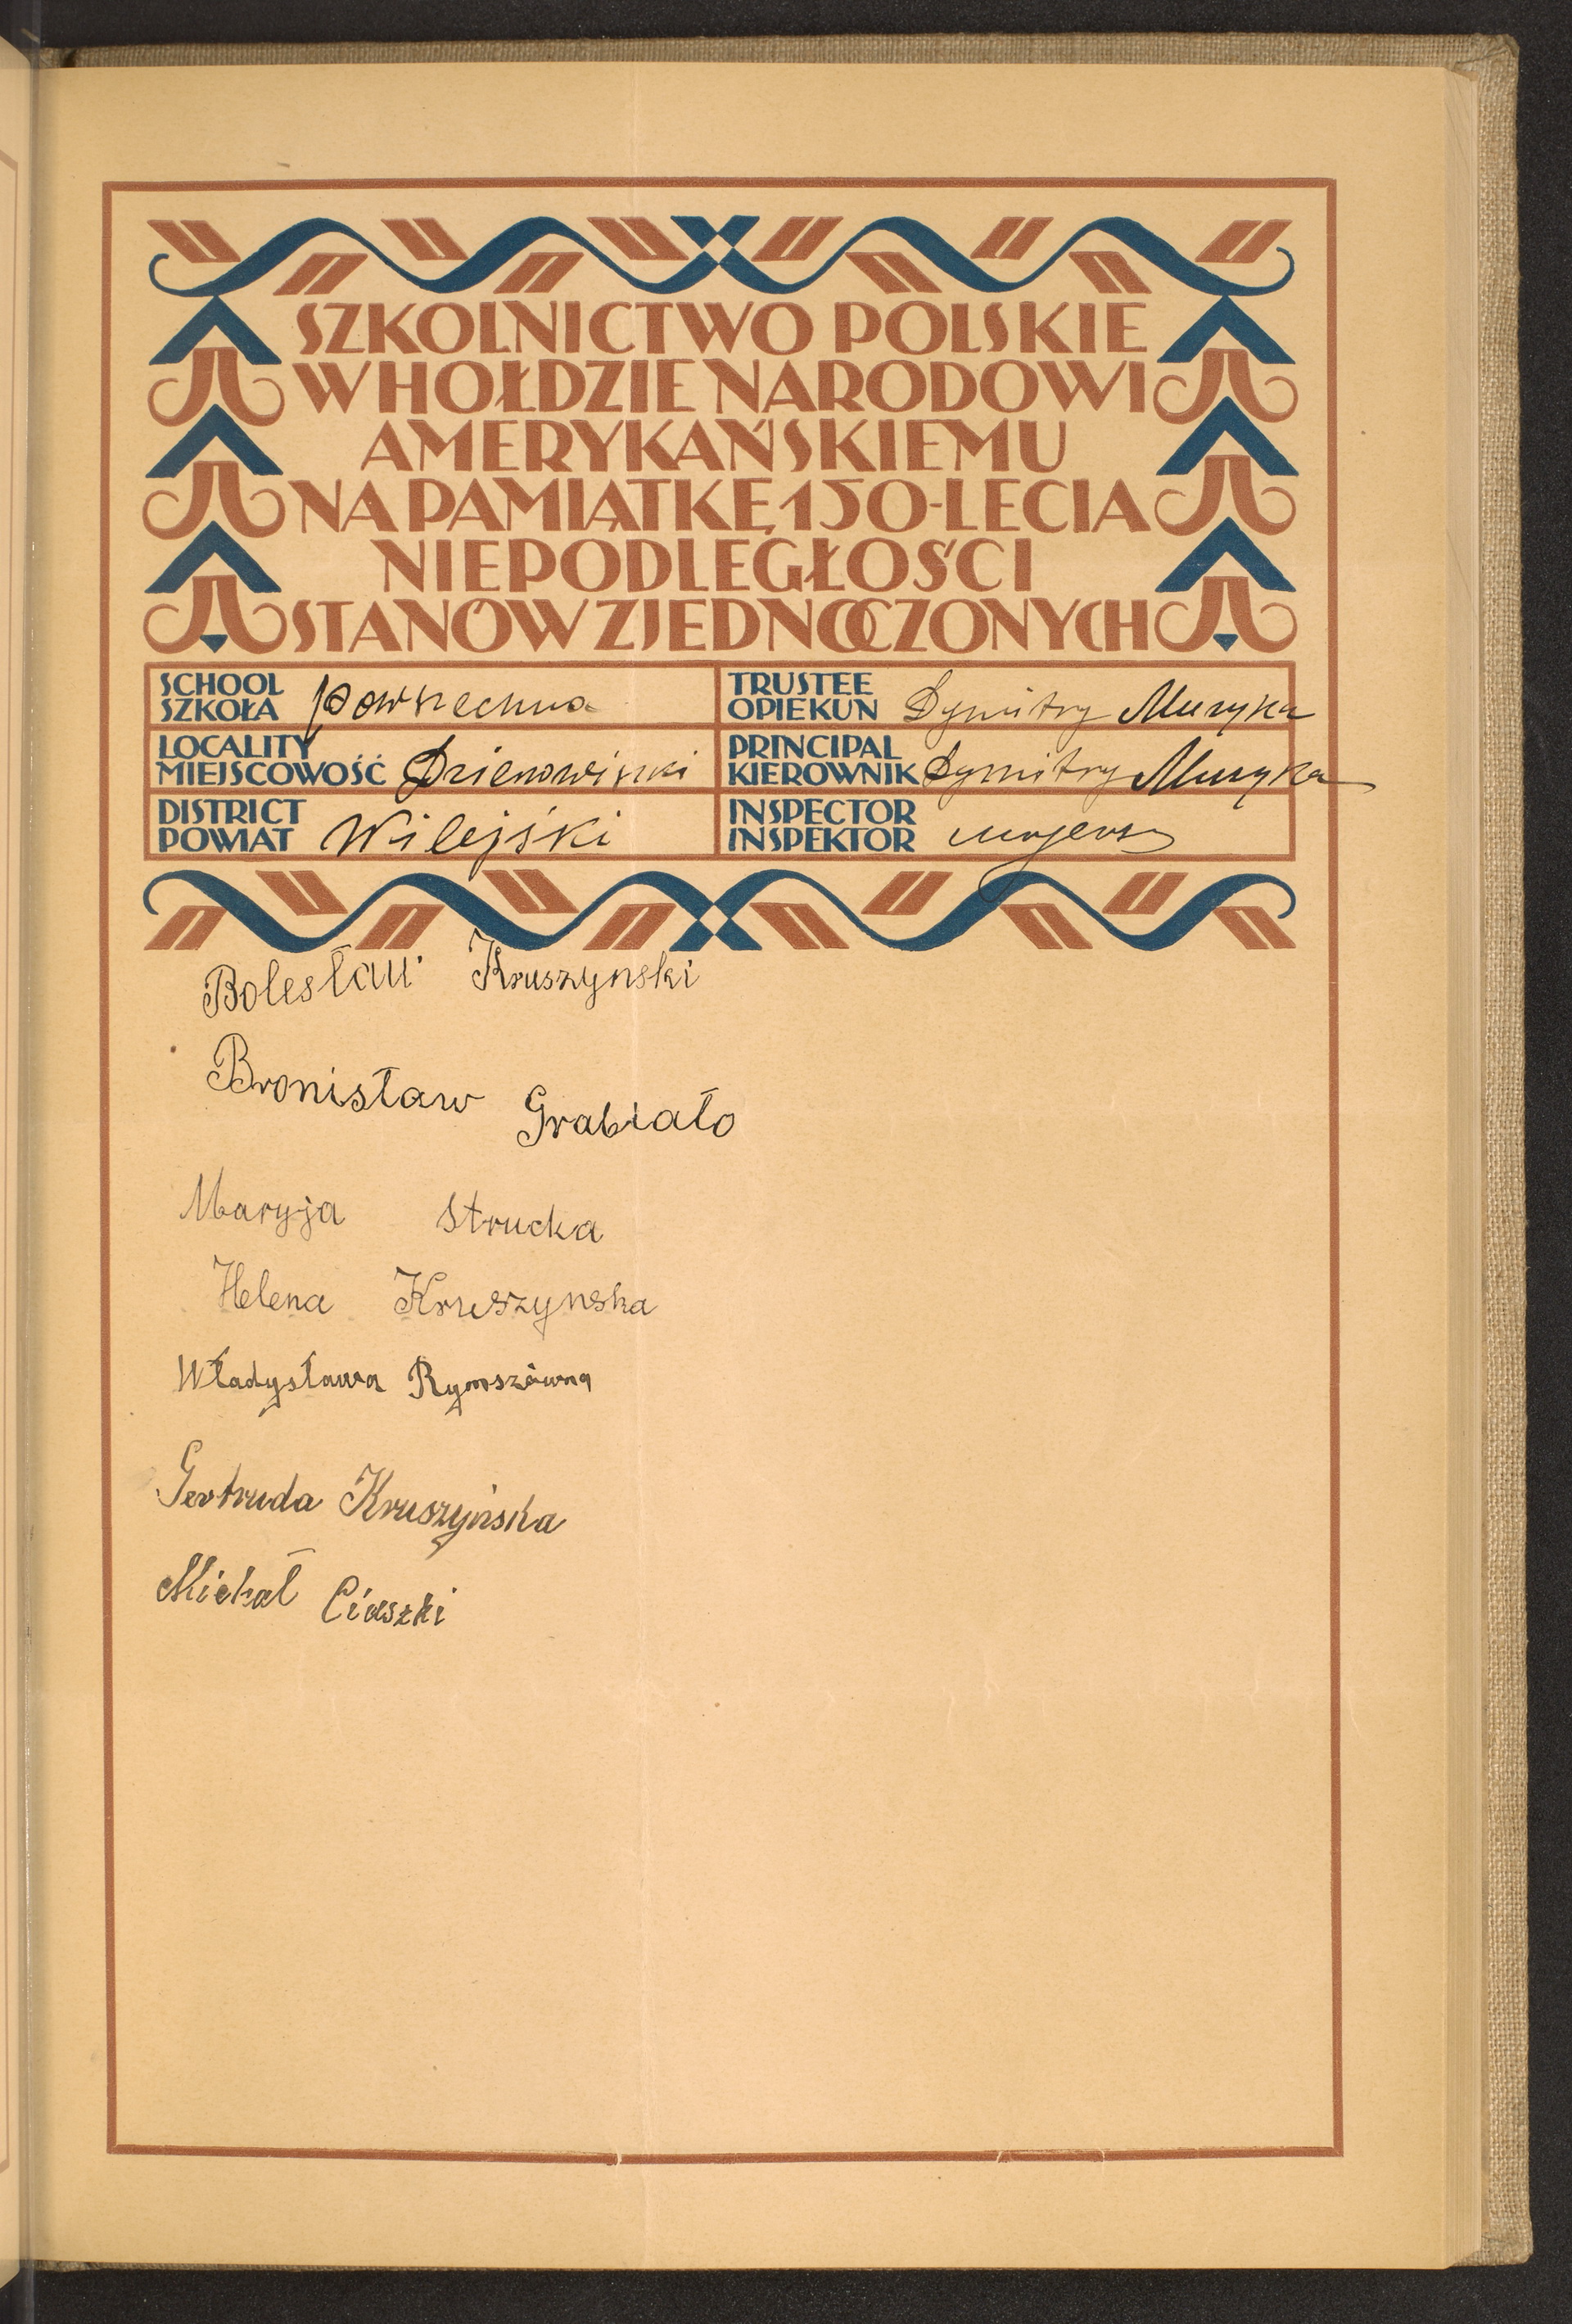 SZKOLNICTWO POLSKIE
W HOŁDZIE NARODOWI
AMERYKAŃSKIEMU
NA PAMIĄTKĘ 150-LECIA
NIEPODLEGŁOŚCI
STANÓW ZJEDNOCZONYCH
SCHOOL
SZKOŁA Powszechna
TRUSTEE
OPIEKUN Dymitry Muzyka
LOCALITY
MIEJSCOWOŚĆ
PRINCIPAL
KIEROWNIK Dymitry Muzyka
DISTRICT
POWIAT Wilejski
INSPECTOR
INSPEKTOR
Bolesław Kruszynski
Bronisław Grabiało
Maryja Strucka
Helena Kruszynska
Władysława Rymszówna
Gertruda Kruszyńska
Michał Ciaszki